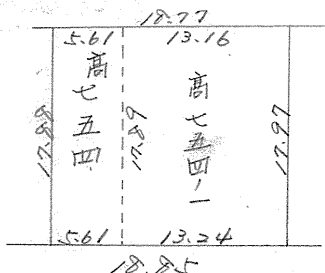 18.77
5.61
13.16
高七五四
高七五四ノ一
17.88
17.89
17.97
5.61
13.24
18.85